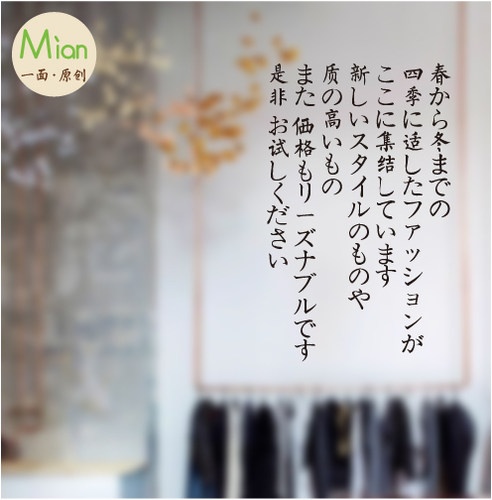 Mian
一面·原创
春から冬までの
四季に适したファッションが
ここに集结しています
新しいスタイルのものや
质の高いもの
また 価格もリーズナブルです
是非 お試しください